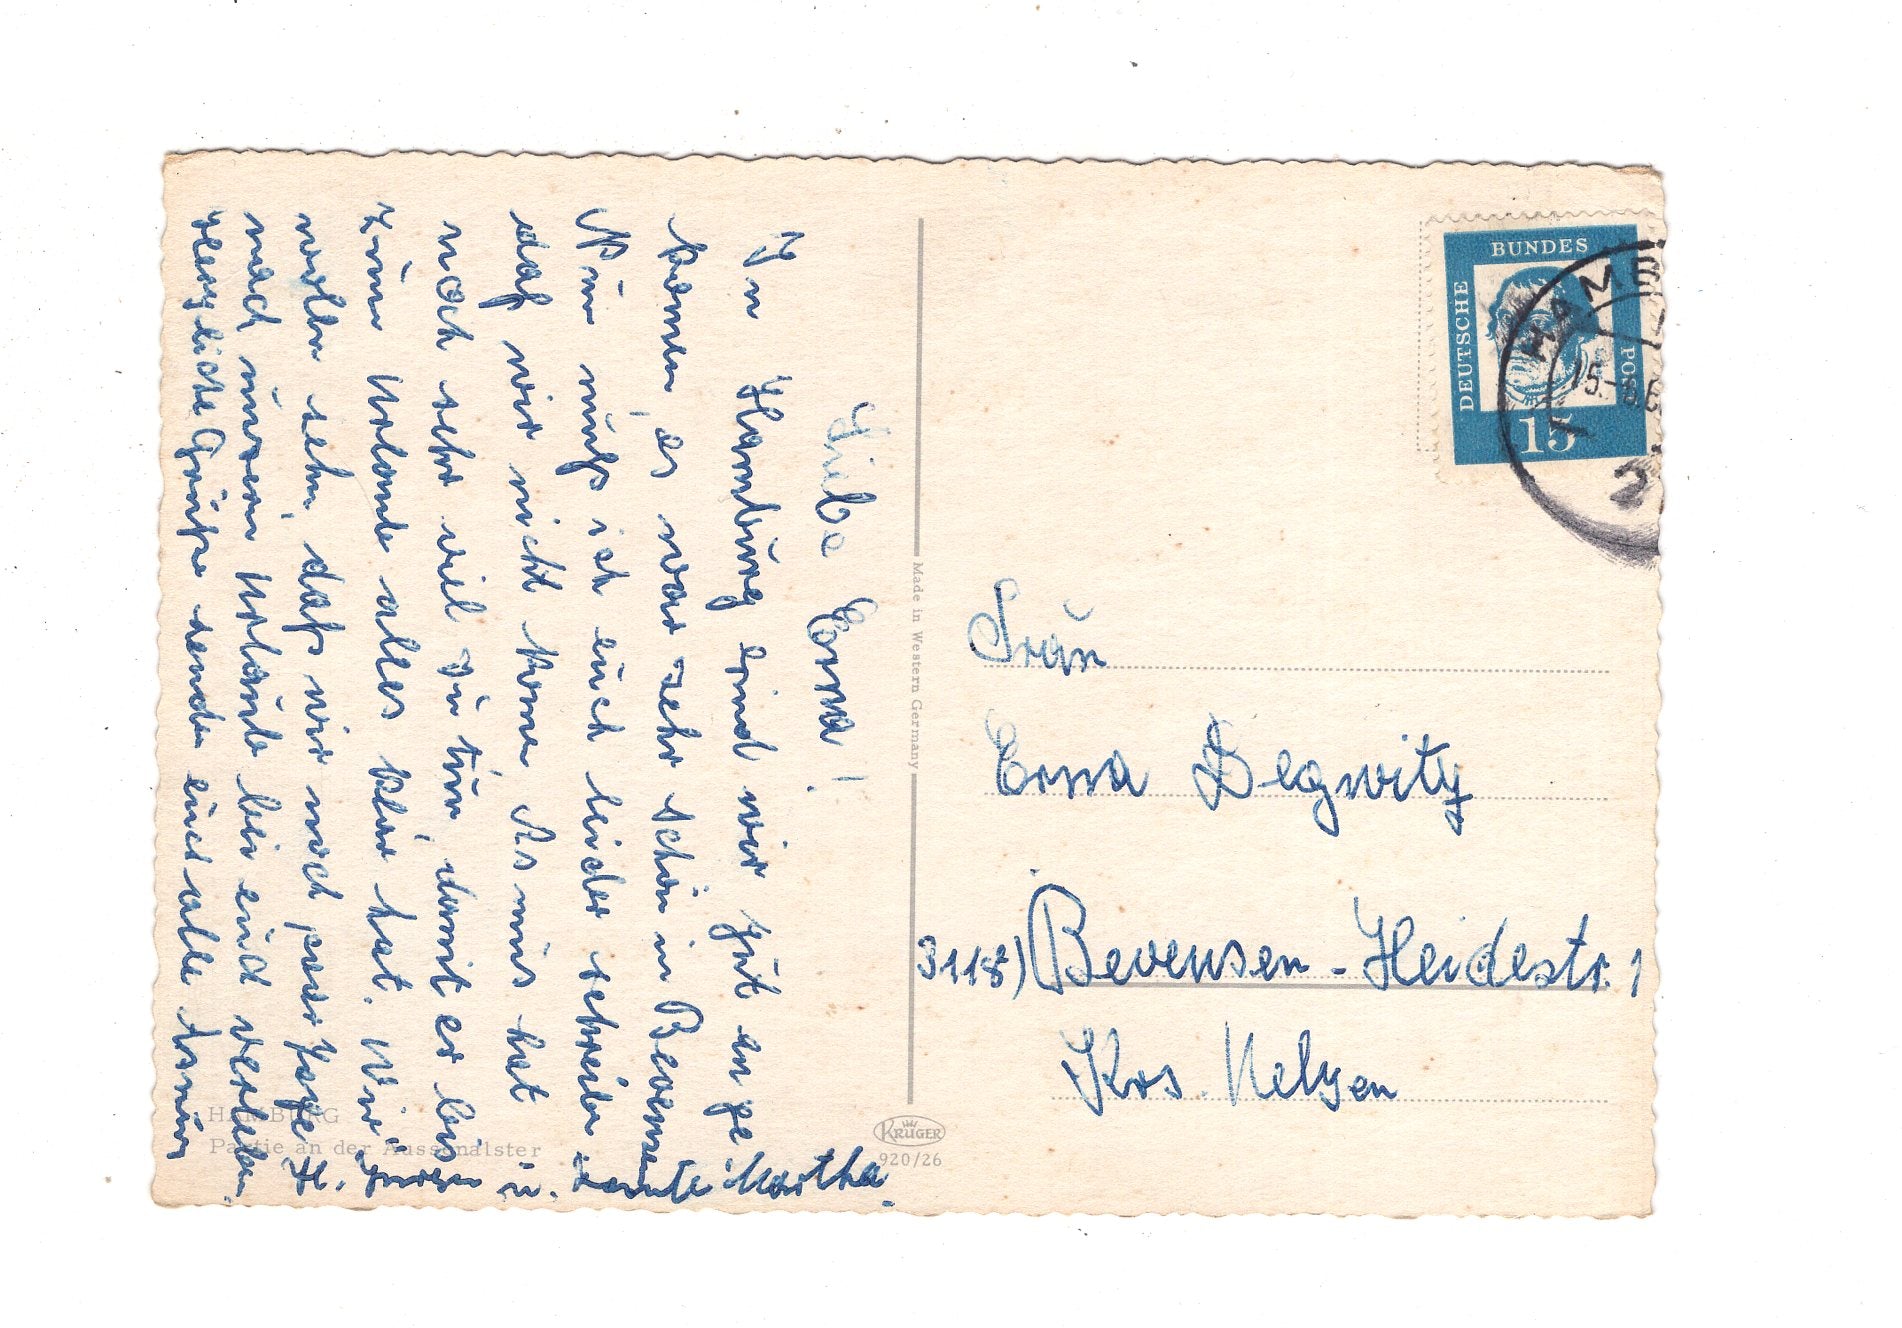 Liebe Erna!
In Hamburg sind wir gut ange
komen, es war sehr schön in Bevensen
Nun muß ich euch leider schreiben
daß wir nicht komen, Asmus hat
noch sehr viel zu tun, damit er bis
zum Urlaub alles klar hat. Wir
wolln sehn, daß wir noch paar Tage
nach unsern Urlaub bei euch verleben.
Herzliche Grüße senden euch alle Asmus
H. Jürgen u. Tante Martha.
HAMBURG
Partie an der Aussenalster
Made in Western Germany
KRÜGER
920/26
DEUTSCHE BUNDES POST
15
HAMB
2
Frau
Erna Degwitz
3118) Bevensen - Heidestr. 1
Krs. Uelzen